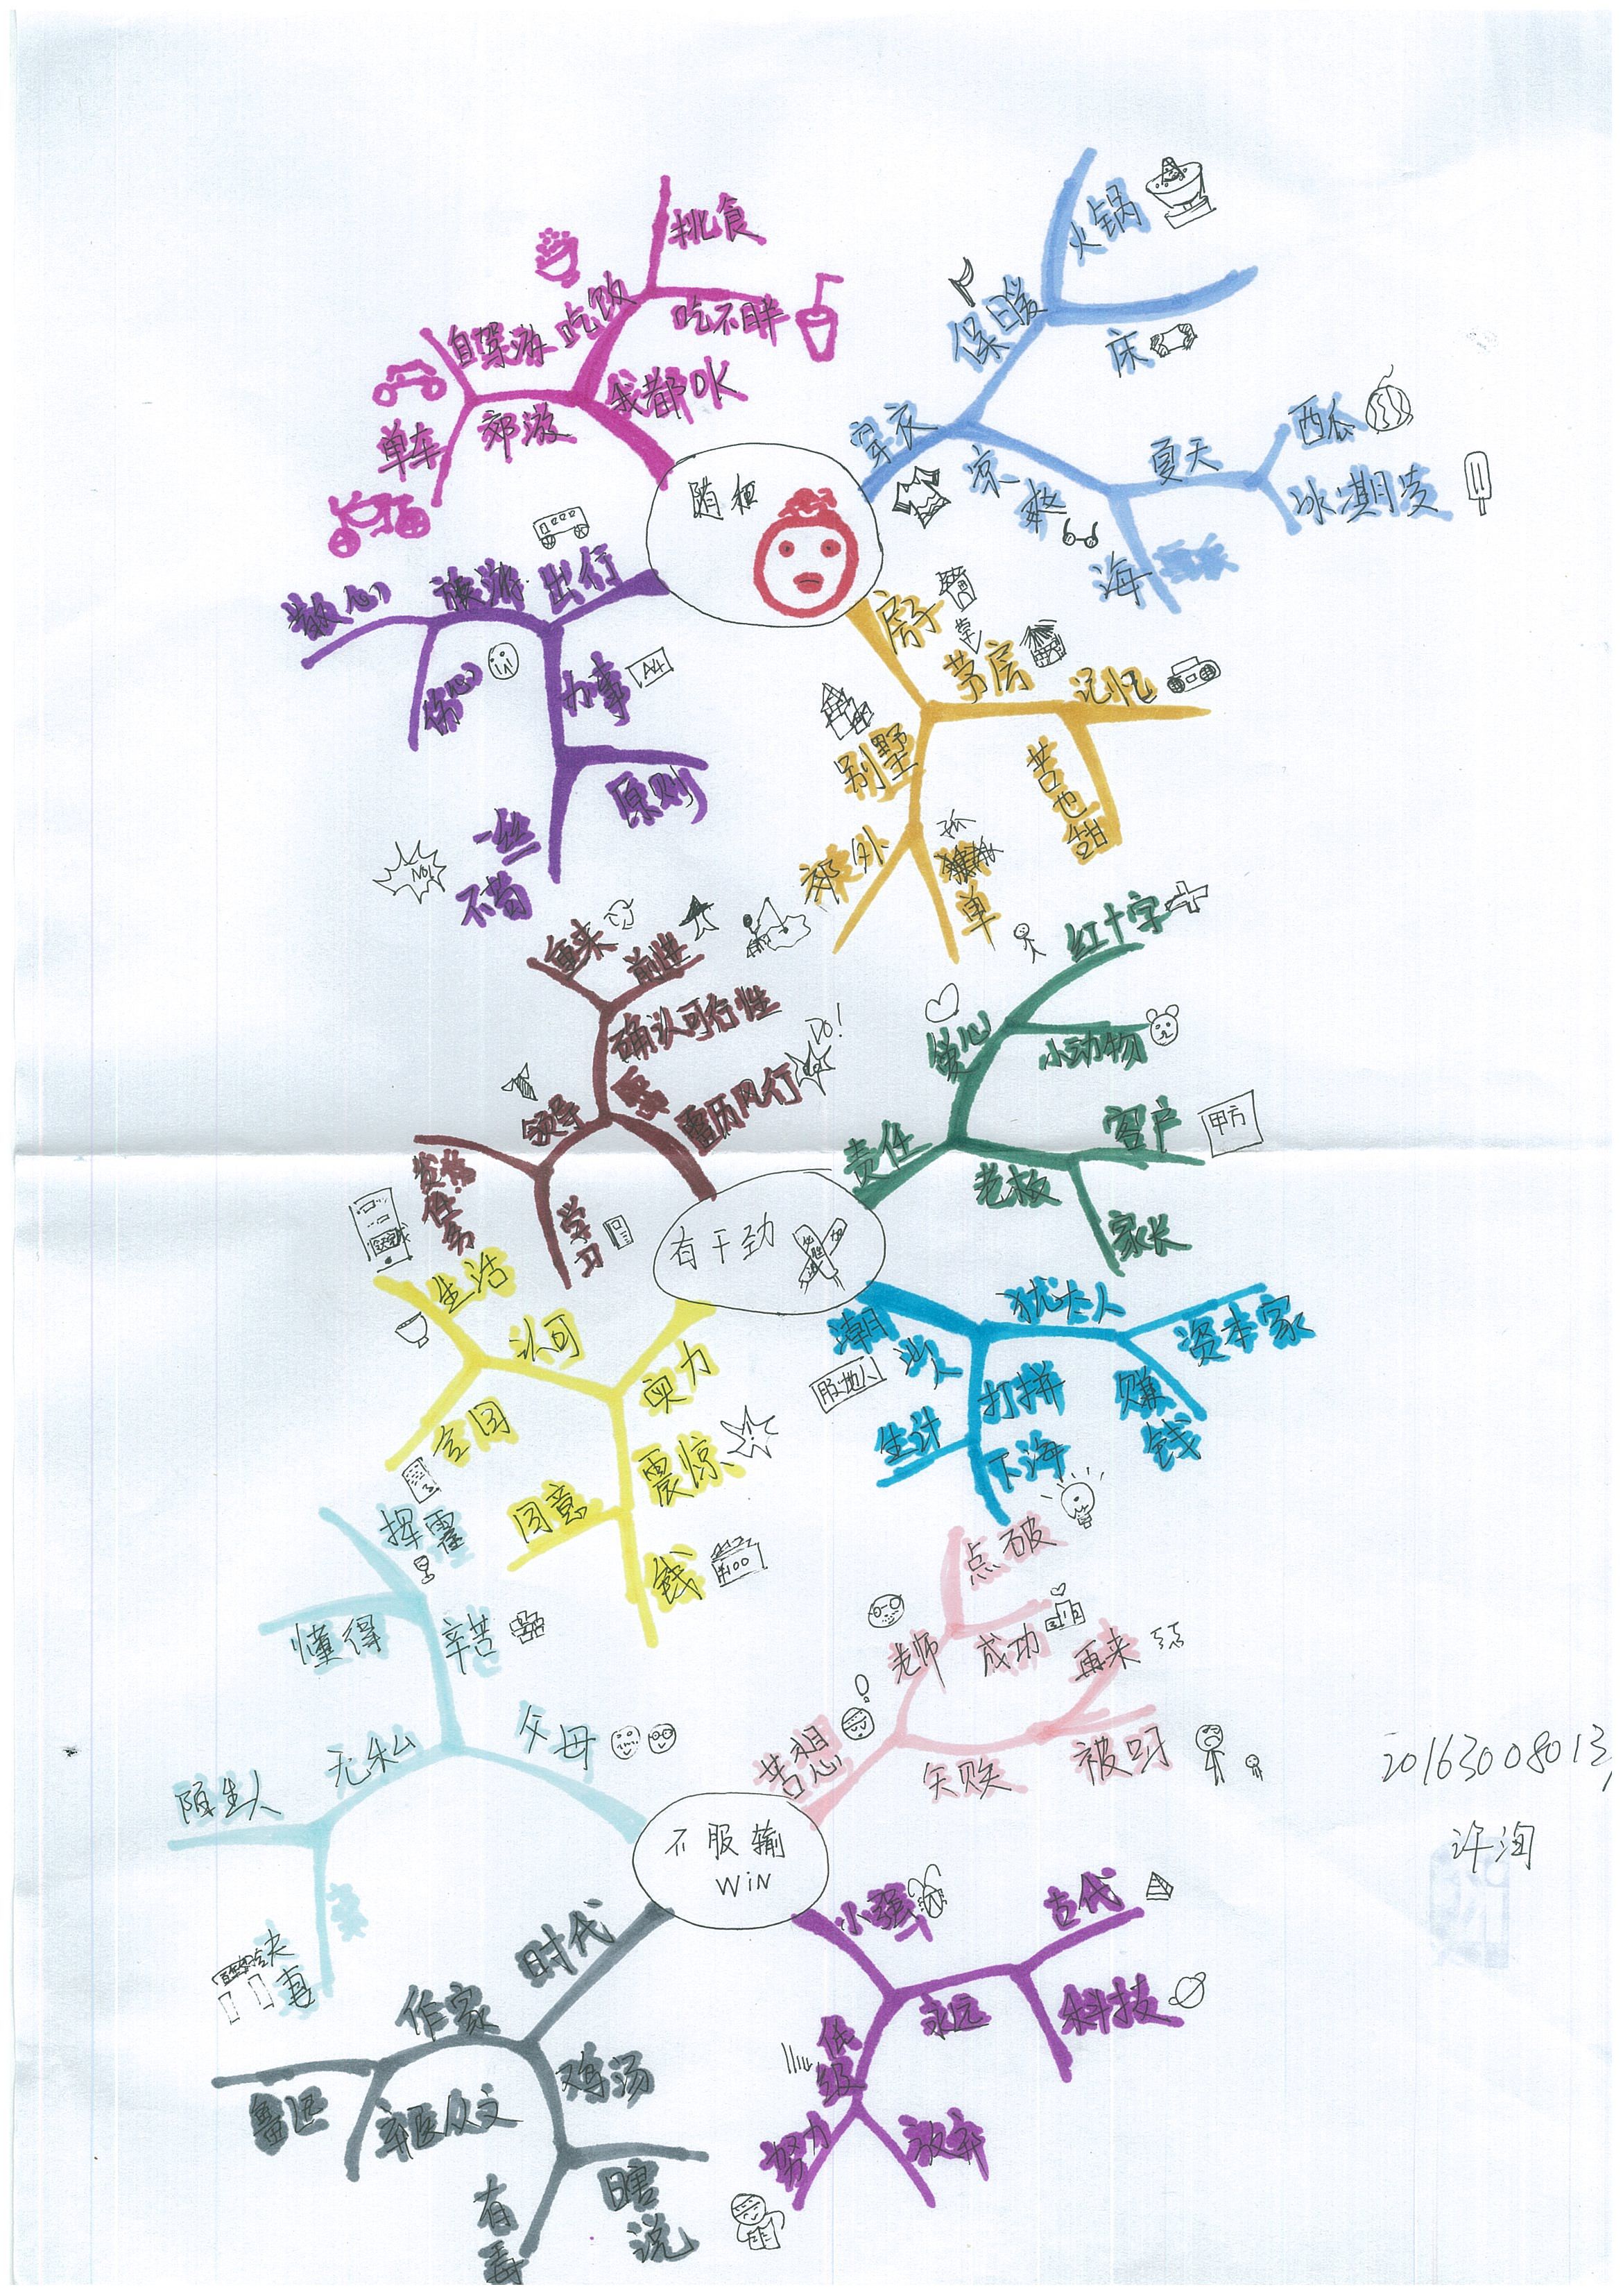 挑食
吃饭
吃不胖
自驾游
我都OK
郊游
单车
随和
火锅
保暖
床
穿衣
凉爽
夏天
西瓜
冰淇凌
海
散心
旅游
出行
伤心
办事
A4
原则
一丝
不苟
NO!
房子
草
茅房
记忆
别墅
苦也甜
郊外
孤
单
重来
前进
确认可行性
DO!
雷历风行
领导
学习
任务
有干劲
红十字
爱心
小动物
客户
甲方
责任
老板
家长
生活
认可
实力
合同
震惊
同意
钱
100
潮汕人
犹太人
资本家
胶地人
打拼
赚钱
生计
下海
挥霍
懂得
辛苦
无私
父母
陌生人
点破
老师
成功
再来
苦想
失败
被叼
201630080 13
许洵
不服输
WIN
夫妻
时代
作家
鸡汤
鲁迅
弃医从文
有毒
瞎说
小强
古代
永远
科技
低级
努力
放弃